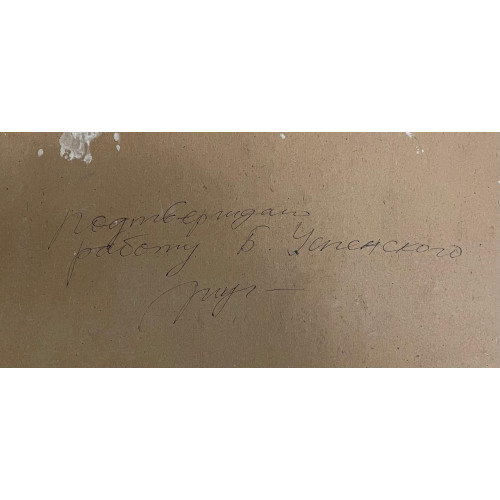 Подтверждаю
работу Б. Успенского